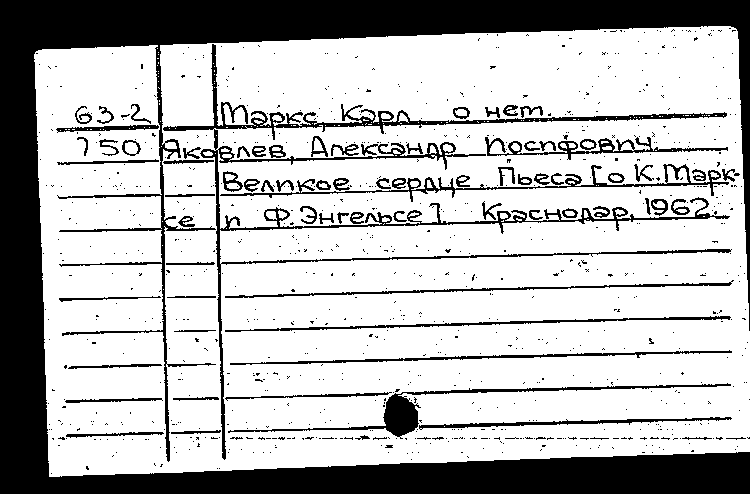 63-2 Маркс, Карл, о нем.
750 Яковлев, Александр Иосифович.
Великое сердце. Пьеса [о К.Марк-
се и Ф.Энгельсе]. Краснодар, 1962.